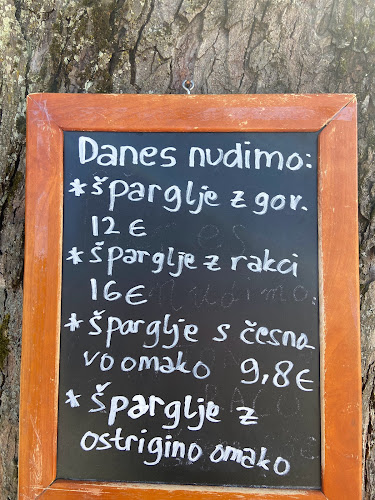 Danes nudimo:
* Šparglje z gov.
12 €
* Šparglje z rakci
16 €
* Šparglje s česno
vo omako 9,8 €
* Šparglje z
ostrigino omako